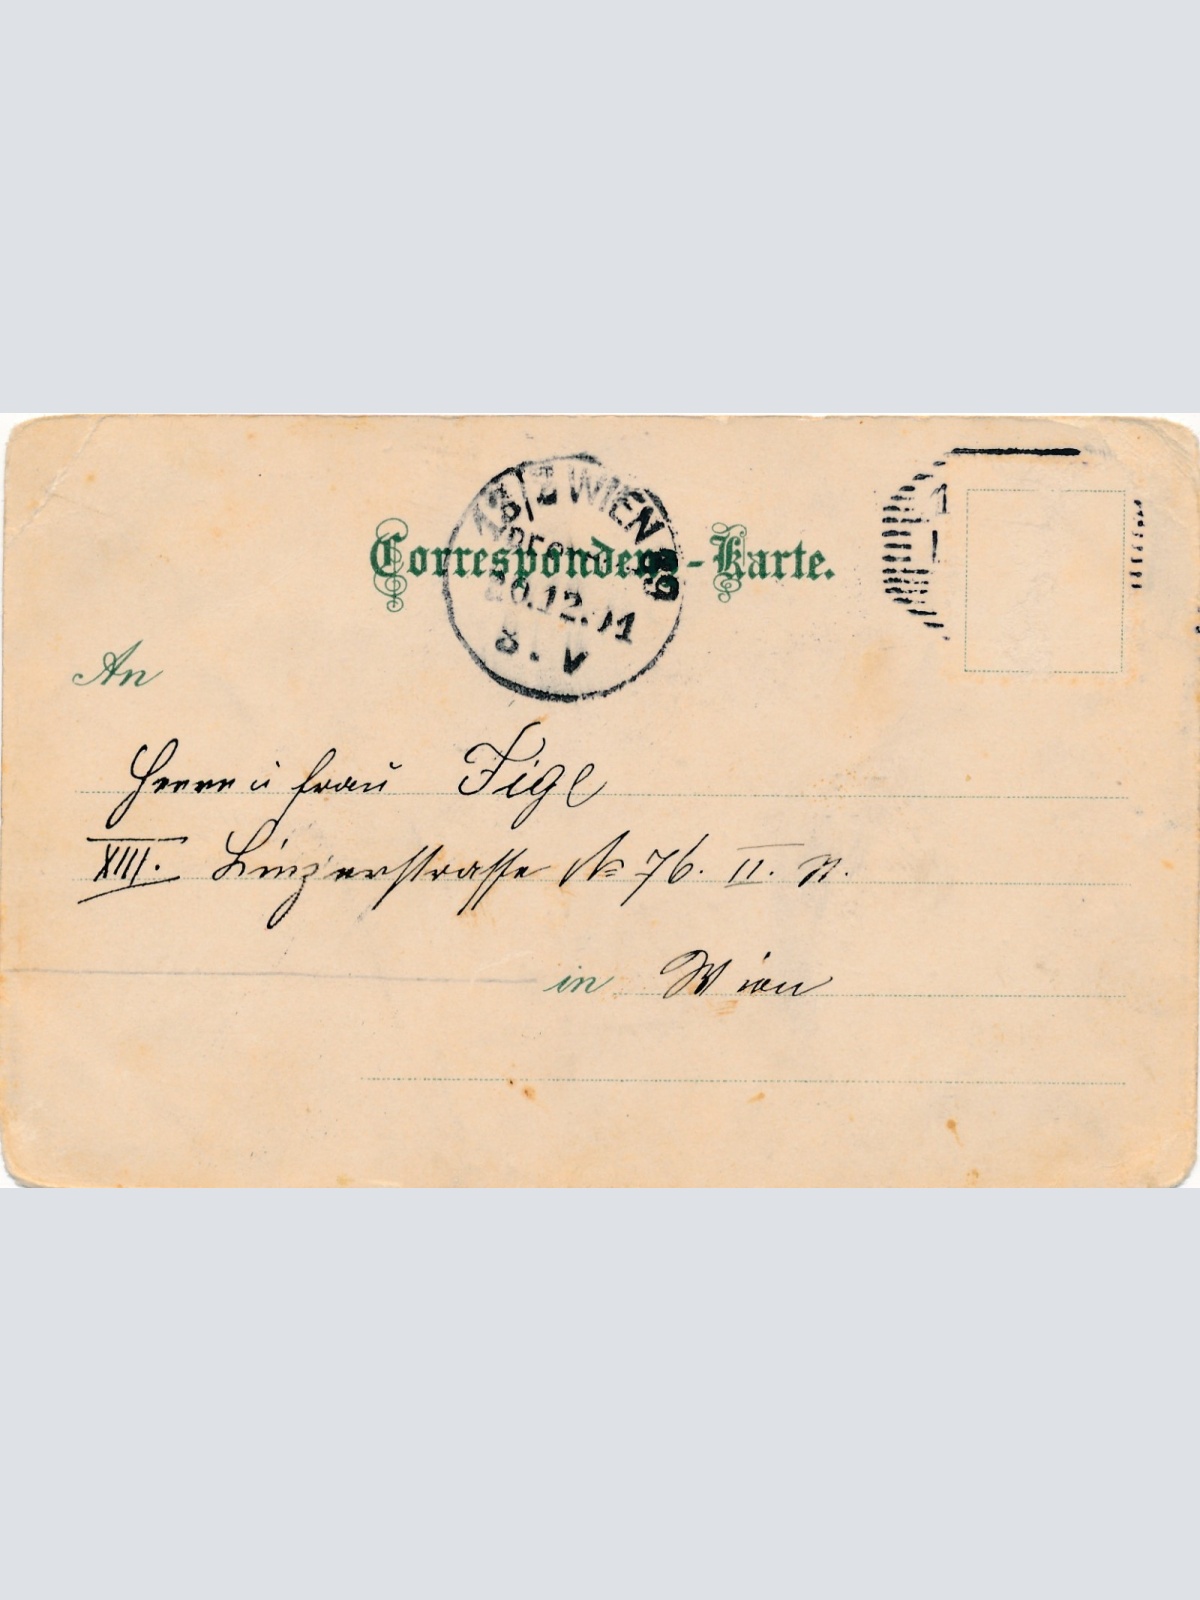 Correspondenz-Karte.
13/2 WIEN 89
20.12.01
8. V
1
An
Herrn u Frau Figl
XIII. Linzerstrasse No 76. II. St.
in Wien